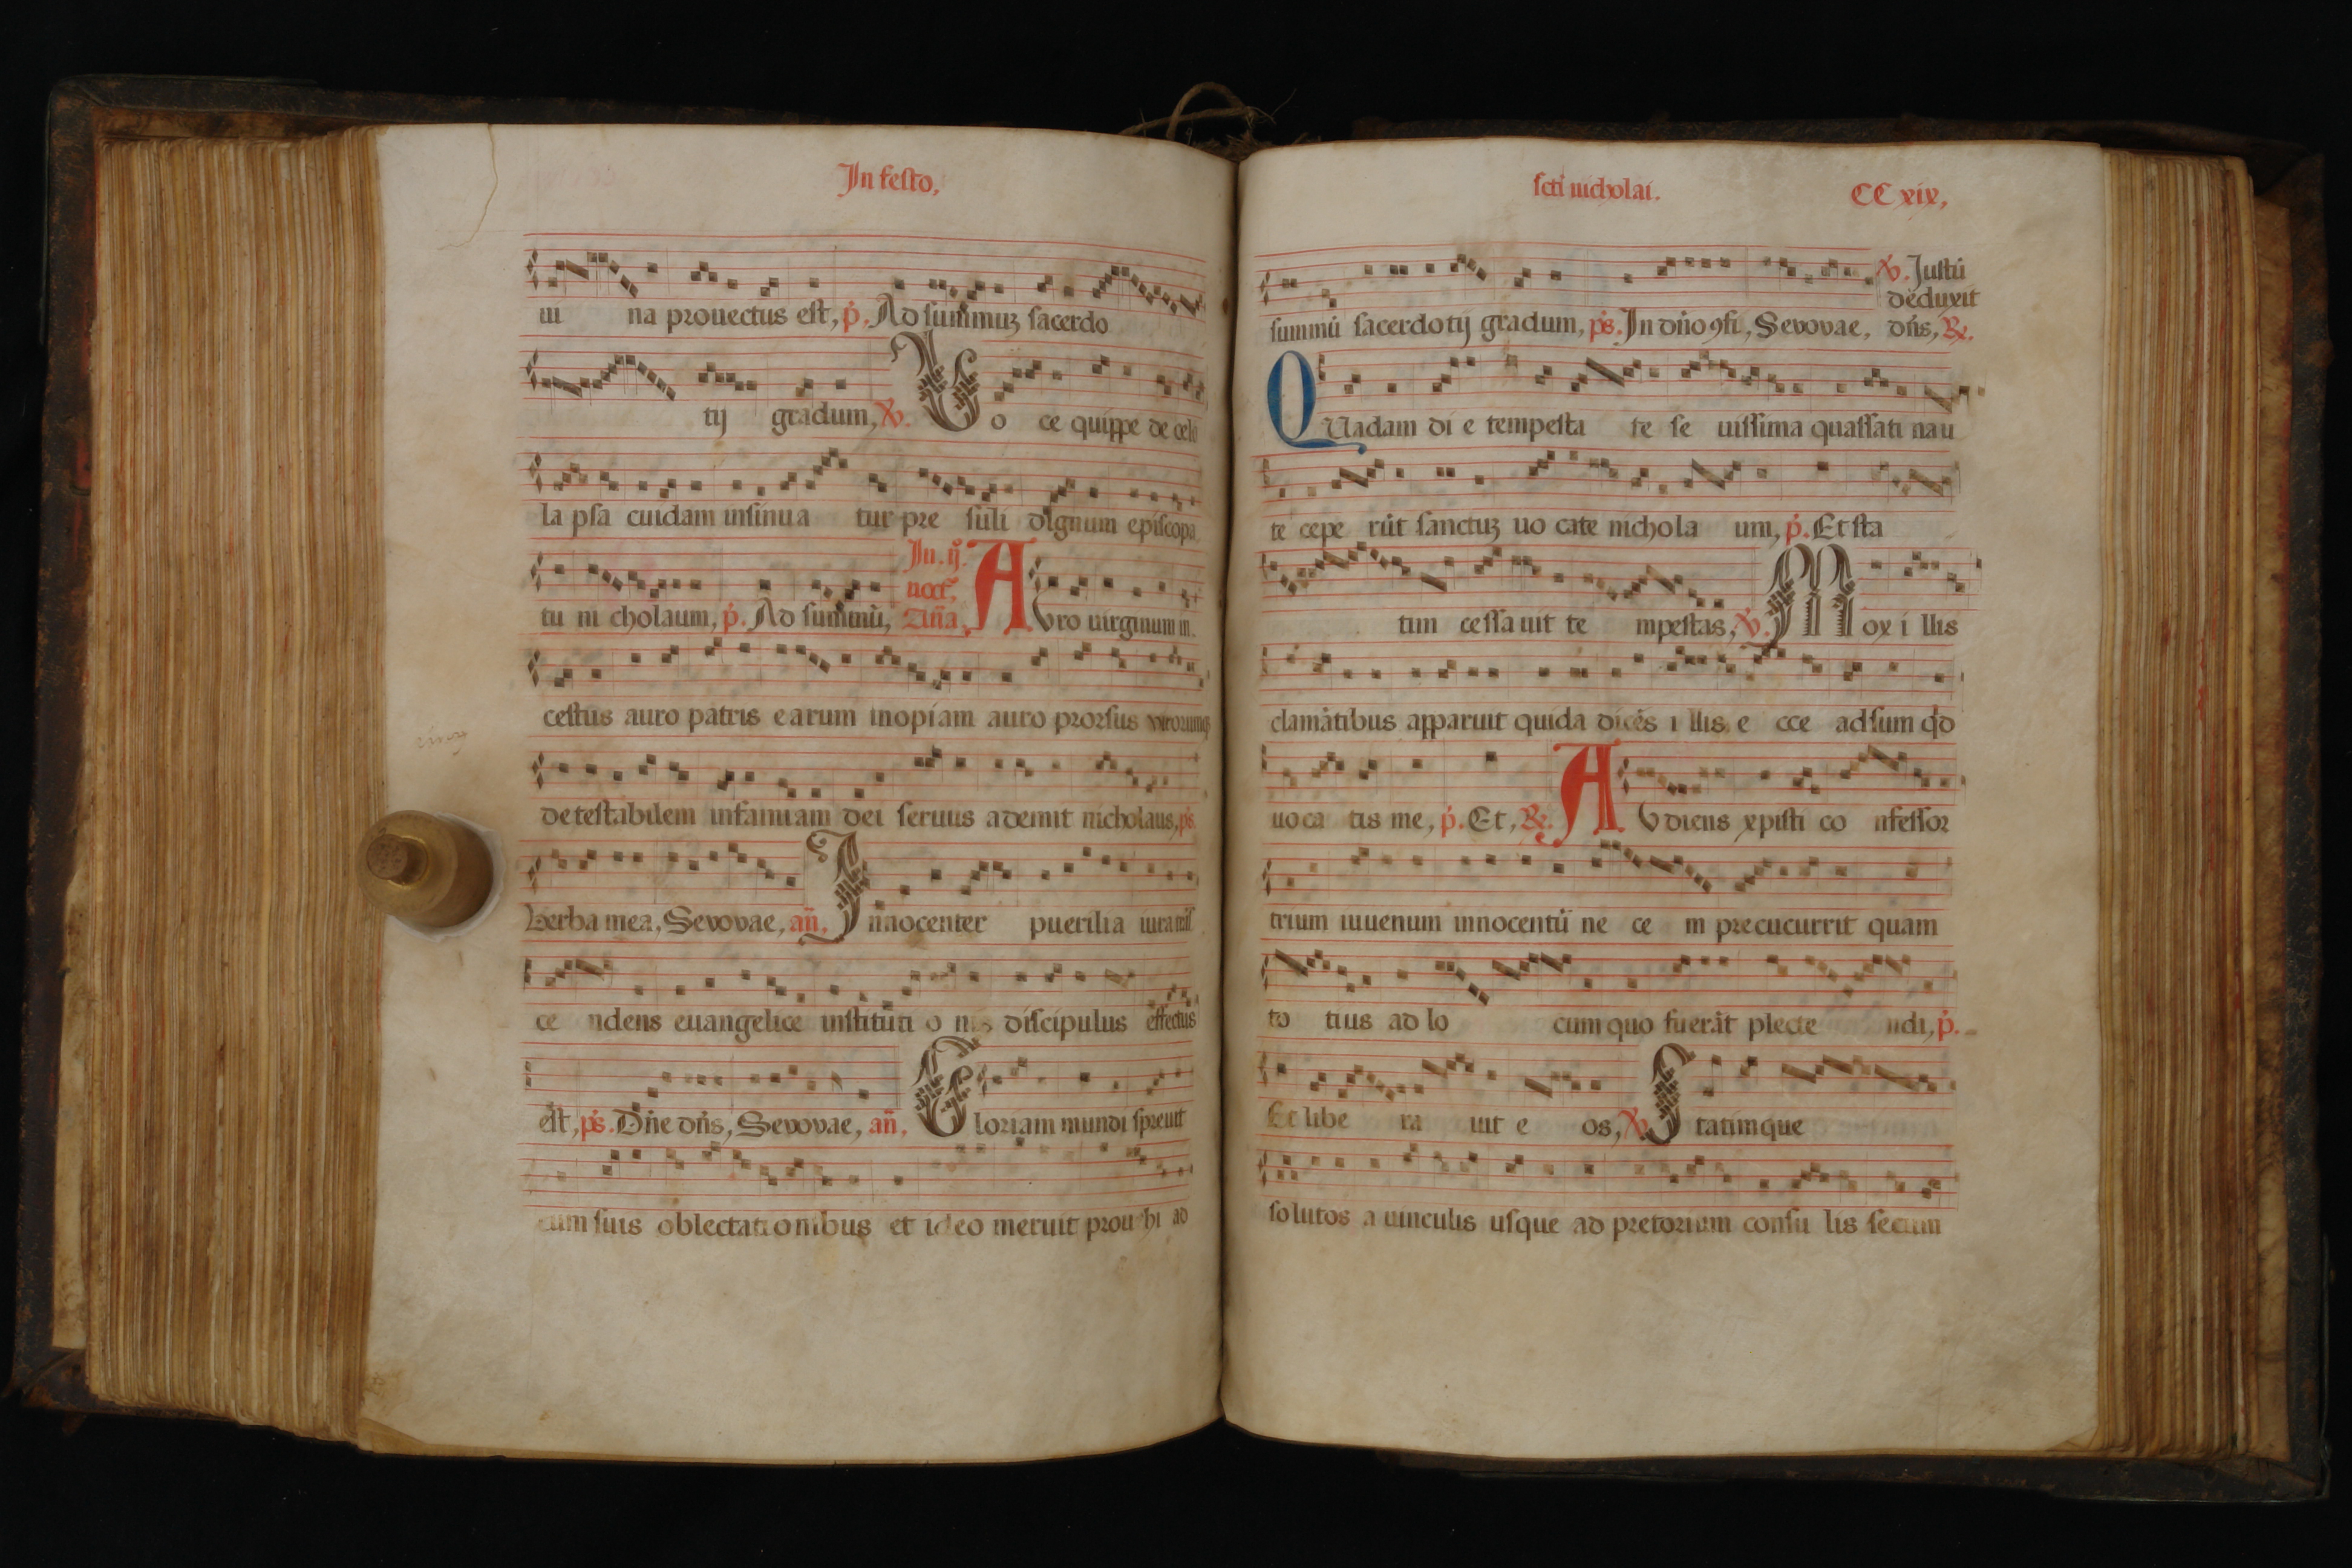 In festo,
ui na prouectus est, p̃. Ad summuʒ sacerdo
tij gradum, ℣. Uo ce quippe de celo
la psa cuidam insinua tur pre suli dignum episcopa
tu ni cholaum, p̃. Ad summũ, In .ij. noct̃. Aña. AUro uirginum in
cestus auro patris earum inopiam auro prorsus
detestabilem infamiam dei seruus ademit nicholaus, p̃s
Verba mea, Seuouae, añ, Innocenter puerilia iura
ce ndens euangelice instituti o nis discipulus effectus
est, p̃s. Dñe dñs, Seuouae, añ, Gloriam mundi spreuit
cum suis oblectationibus et ideo meruit prouehi ad
scti nicholai. CC xix,
℣. Justũ
deduxit
summũ sacerdotij gradum, p̃s. In dño ꝯfi, Seuouae, dñs, ℟.
QUadam di e tempesta te se uissima quassati nau
te cepe rũt sanctuʒ uo cate nichola um, p̃. Et sta
tim cessa uit te mpestas, ℣. Mox i llis
clamãtibus apparuit quidã dicẽs i llis e cce adsum qd
uoca tis me, p̃. Et, ℟. AUdiens xpisti co nfessor
trium iuuenum innocentũ ne ce m precucurrit quam
to tius ad lo cum quo fuerãt plecte ndi, p̃.
Et libe ra uit e os, ℣. Statimque
solutos a uinculis usque ad pretorium consu lis secum